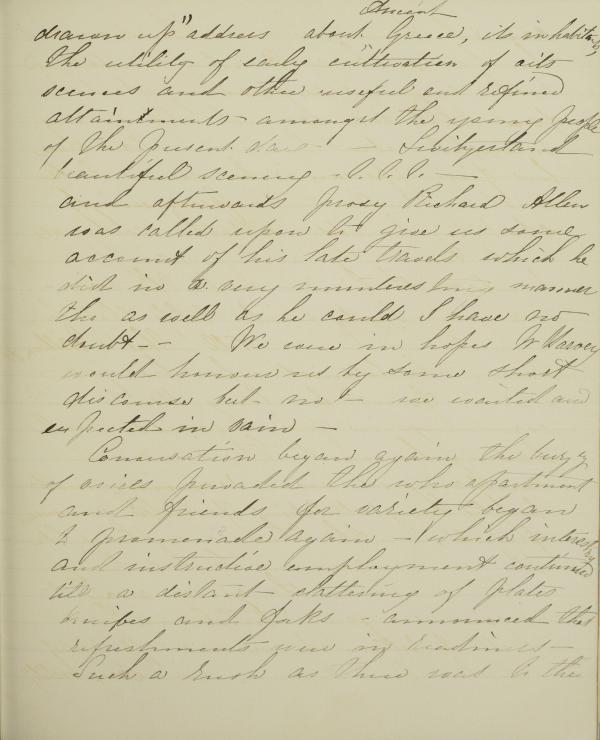 Ancient
drawn up" address about Greece, its inhabitants,
the utility of early cultivation of arts
scences and other useful and refined
attainments amongst the young people
of the present days — Switzerland
beautiful scenery
and afterwards prosy Richard Allen
was called upon to give us some
account of his late travels which he
did in a very uninteresting manner
tho as well as he could I have no
doubt - - We were in hopes W Harvey
would honour us by some short
discourse but no - we waited and
expected in vain -
Conversation began again the buzz
of voices pervaded the who apartment
and friends for variety began
to promenade again - (which interesting
and instructive employment continued
till a distant clattering of plates
knifes and forks - announced that
refreshments were in readiness -
Such a rush as there was to the